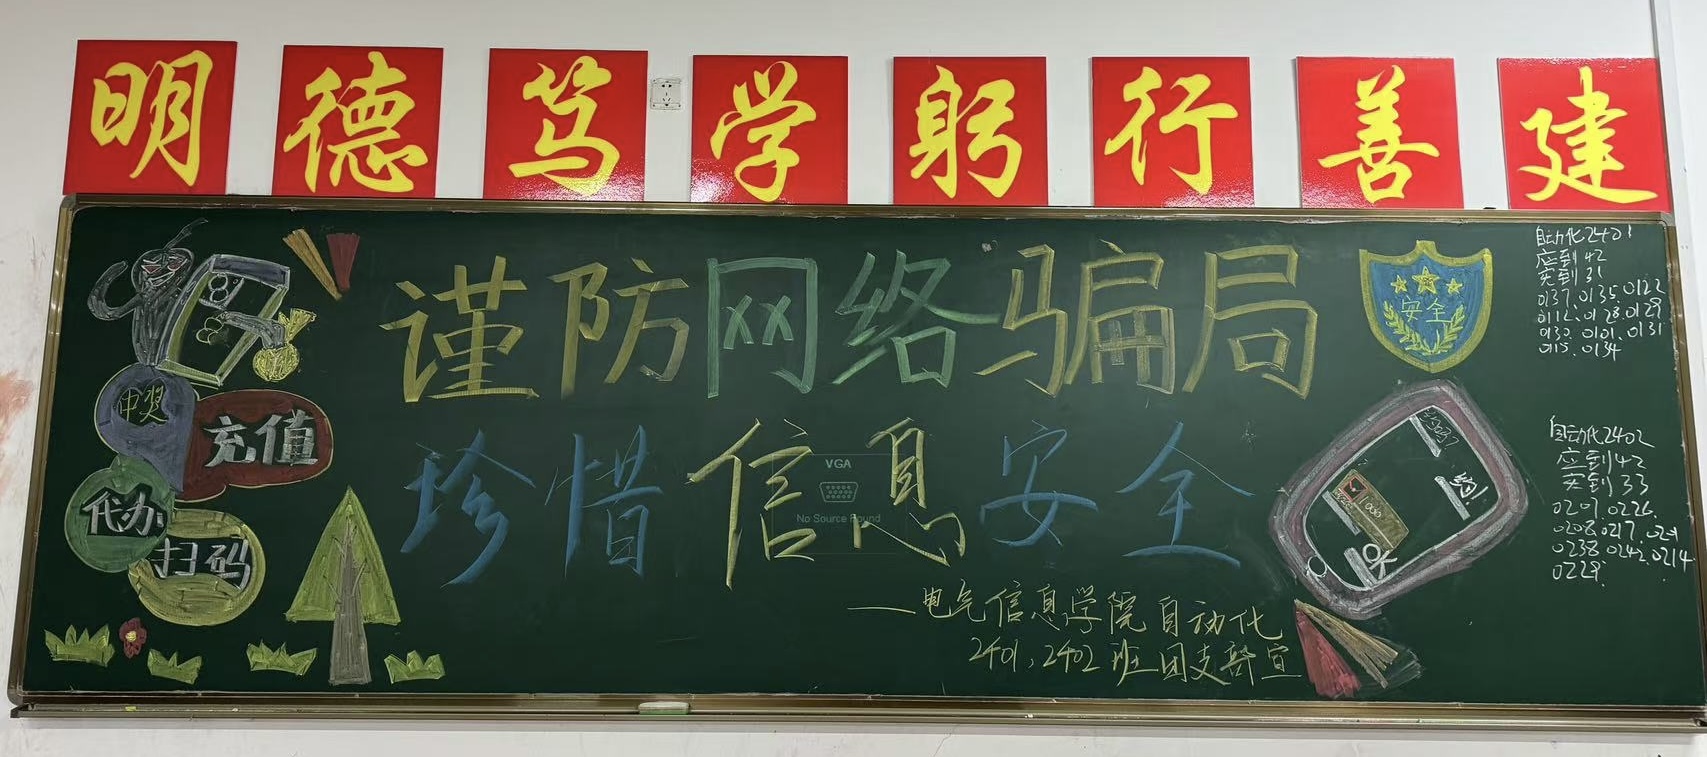 明德笃学躬行善建
谨防网络骗局
珍惜信息安全
VGA
No Source Found
——电气信息学院自动化
2401,2402班团支部宣
中奖
充值
代办
扫码
安全
100
OK
自动化2401
应到42
实到31
0137.0135.0122
0112.0128.0129
0130.0101.0131
0115.0134
自动化2402
应到42
实到33
0201.0226.
0208.0217.
0238.0242.0214
0229.